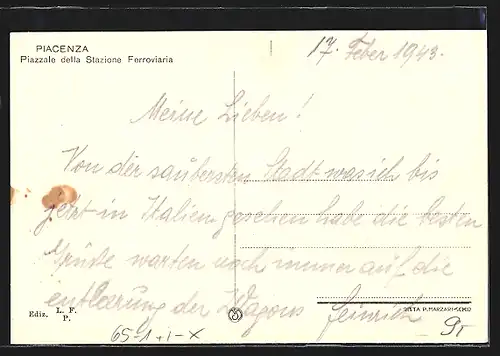 PIACENZA
Piazzale della Stazione Ferroviaria
17. Feber 1943.
Meine Lieben!
Von der saubersten Stadt was ich bis
jetzt in Italien gesehen habe die besten
Grüße warten noch immer auf die
entleerung der Wagons Heinrich
Ediz. L. F. P.
DITTA P. MARZARI-SCHIO
65-1+1-X